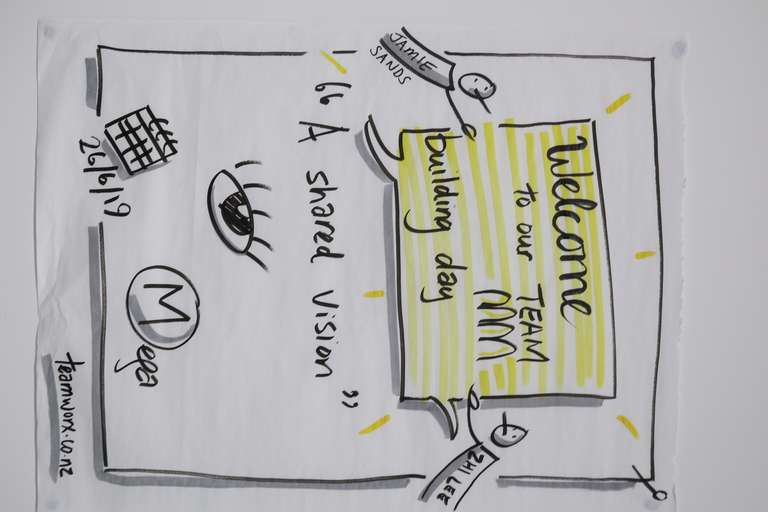 JAMIE
SANDS
Welcome
to our TEAM
building day
ZHI LEE
“ A shared vision ”
26/6/19
Mega
teamworx.co.nz